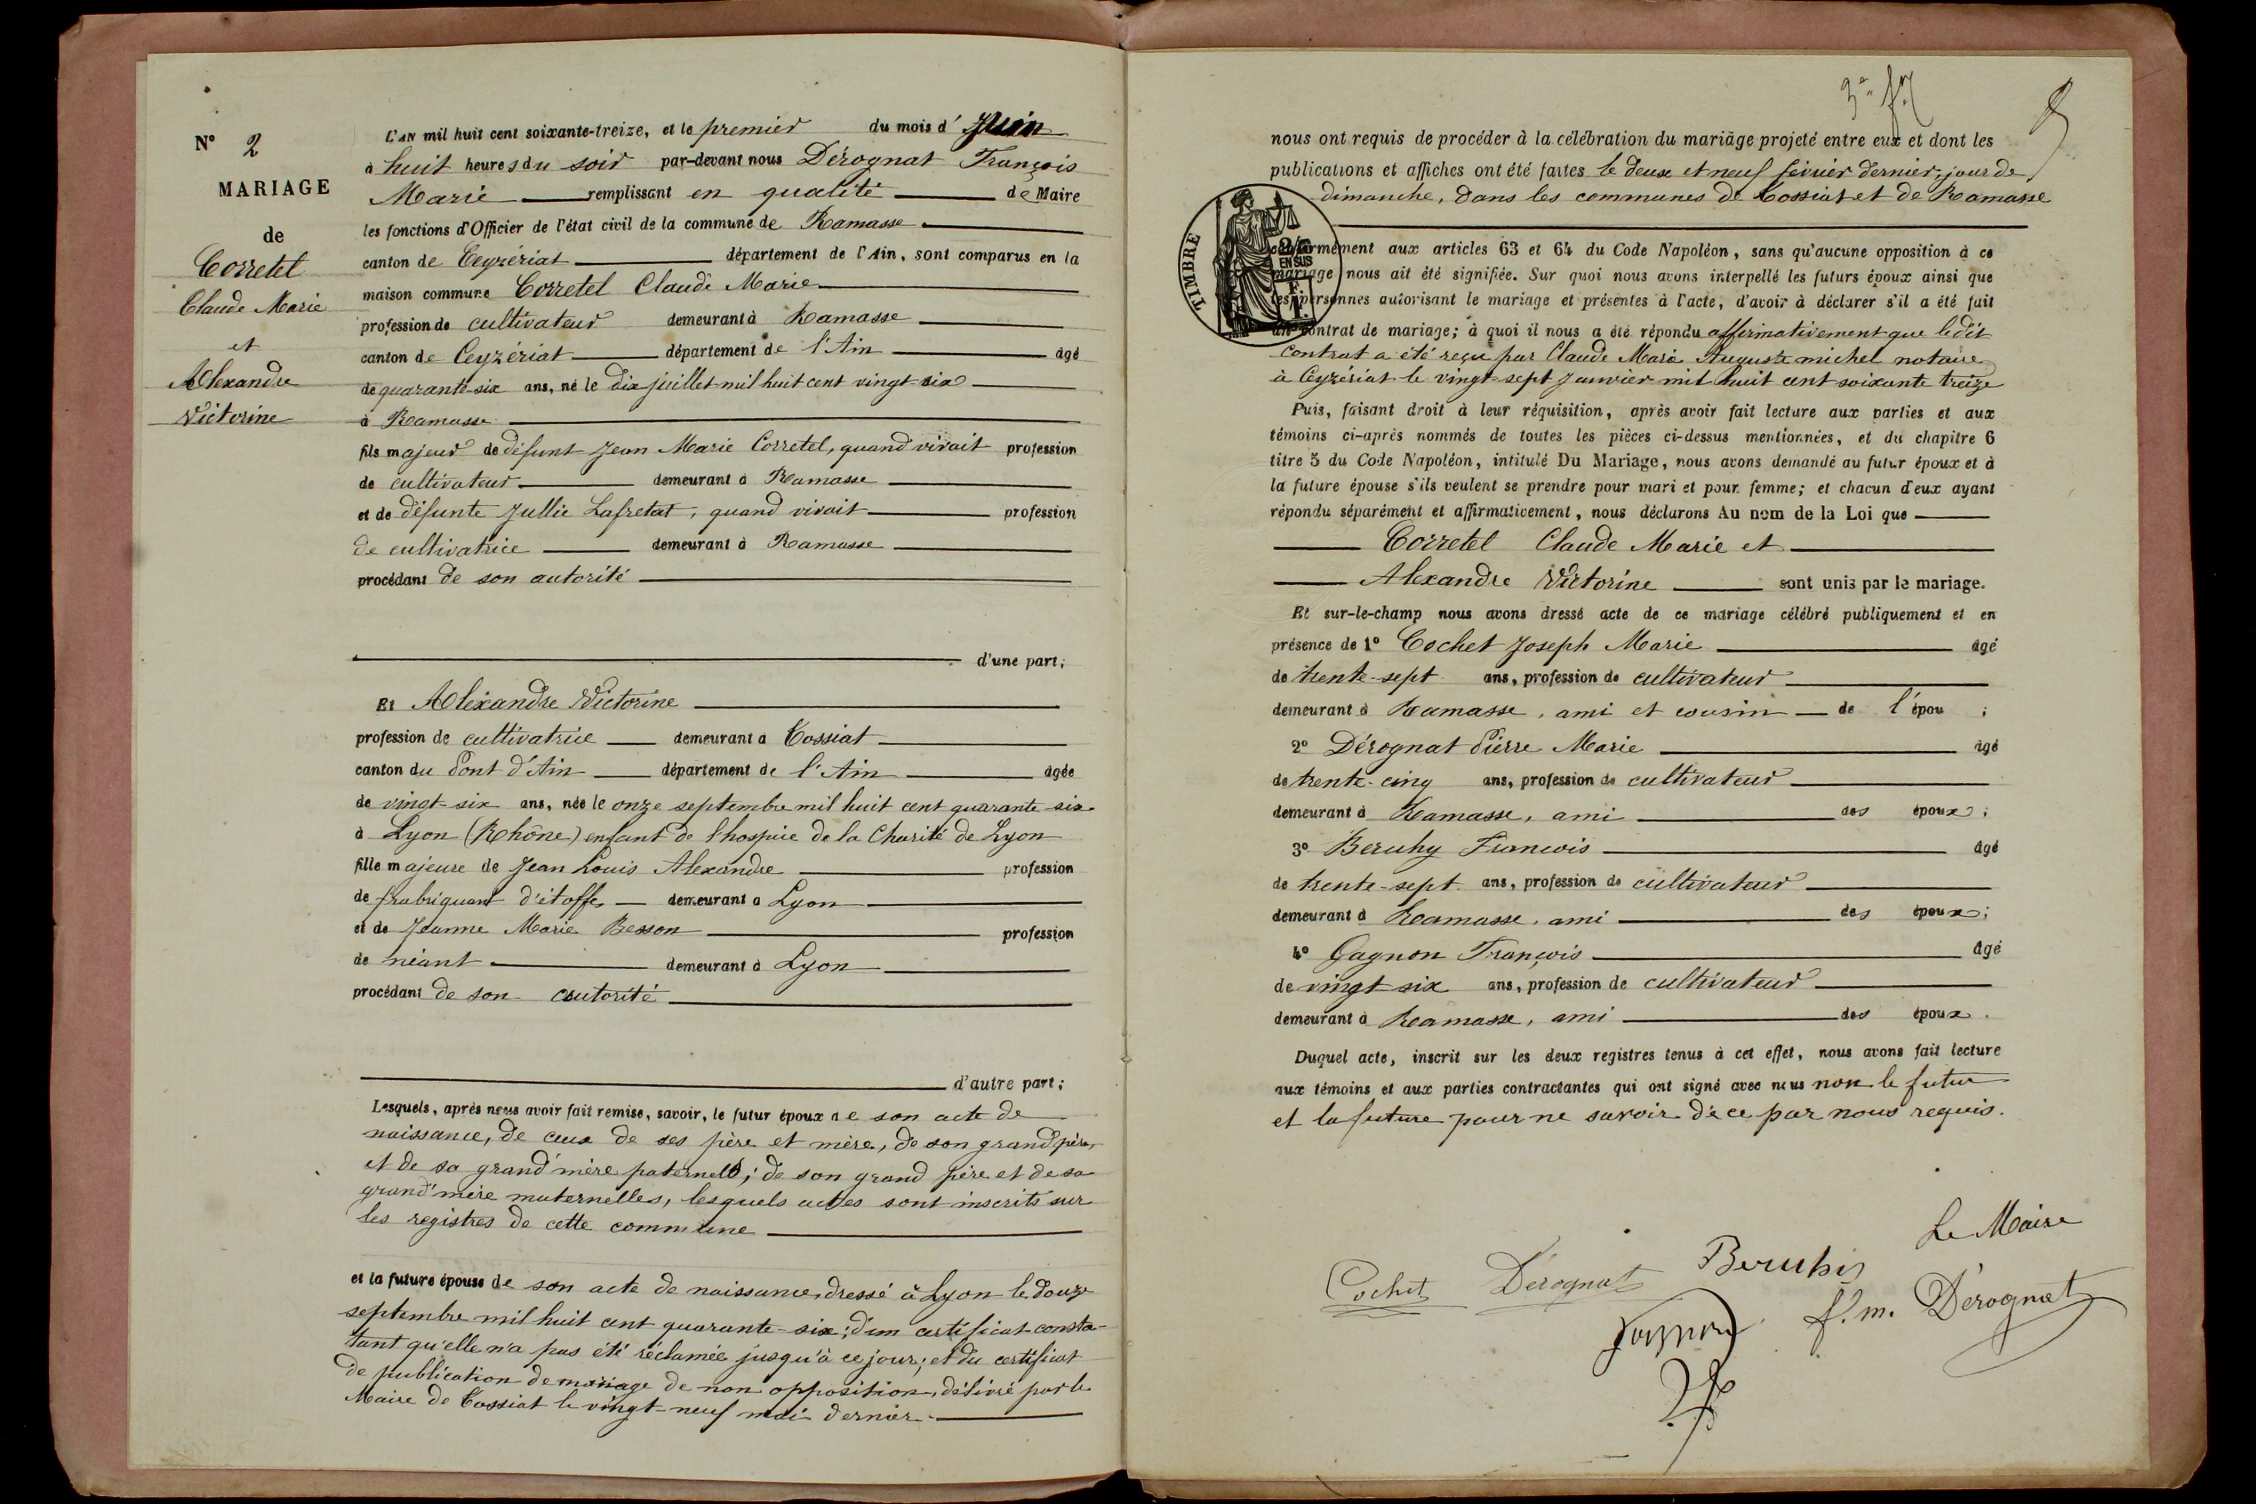 N° 2
MARIAGE
de
Corretel
Claude Marie
et
Alexandre
Victorine
L'AN mil huit cent soixante-treize, et le premier du mois d' Juin
à huit heures du soir par-devant nous Dérognat François
Marie remplissant en qualité de Maire
les fonctions d'Officier de l'état civil de la commune de Ramasse
canton de Ceyzériat département de l'Ain, sont comparus en la
maison commune Corretel Claude Marie
profession de cultivateur demeurant à Ramasse
canton de Ceyzériat département de l'Ain âgé
de quarante-six ans, né le dix juillet mil huit cent vingt-six
à Ramasse
fils majeur de défunt Jean Marie Corretel, quand vivait profession
de cultivateur demeurant à Ramasse
et de défunte Jullie Lafretat, quand vivait profession
de cultivatrice demeurant à Ramasse
procédant de son autorité
d'une part;
Et Alexandre Victorine
profession de cultivatrice demeurant à Tossiat
canton du Pont d'Ain département de l'Ain âgée
de vingt-six ans, née le onze septembre mil huit cent quarante-six
à Lyon (Rhône) enfant de l'hospice de la Charité de Lyon
fille majeure de Jean Louis Alexandre profession
de frabriquant d'étoffes demeurant à Lyon
et de Jeanne Marie Besson profession
de néant demeurant à Lyon
procédant de son autorité
d'autre part;
Lesquels, après nous avoir fait remise, savoir, le futur époux de son acte de
naissance, de ceux de ses père et mère, de son grand'père
et de sa grand'mère paternels; de son grand père et de sa
grand'mère maternelles, lesquels actes sont inscrits sur
les registres de cette commune
et la future épouse de son acte de naissance, dressé à Lyon le douze
septembre mil huit cent quarante-six; d'un certificat consta-
tant qu'elle n'a pas été réclamée jusqu'à ce jour; et du certificat
de publication de mariage de non opposition, délivré par le
Maire de Tossiat le vingt-neuf mai dernier.
nous ont requis de procéder à la célébration du mariage projeté entre eux et dont les
publications et affiches ont été faites le deux et neuf février dernier, jour de
dimanche, dans les communes de Tossiat et de Ramasse
TIMBRE
2/10
EN SUS
conformément aux articles 63 et 64 du Code Napoléon, sans qu'aucune opposition à ce
mariage nous ait été signifiée. Sur quoi nous avons interpellé les futurs époux ainsi que
les personnes autorisant le mariage et présentes à l'acte, d'avoir à déclarer s'il a été fait
un contrat de mariage; à quoi il nous a été répondu affirmativement que ledit
contrat a été reçu par Claude Marie Auguste michel notaire
à Ceyzériat le vingt-sept Janvier mil huit cent soixante treize
Puis, faisant droit à leur réquisition, après avoir fait lecture aux parties et aux
témoins ci-après nommés de toutes les pièces ci-dessus mentionnées, et du chapitre 6
titre 5 du Code Napoléon, intitulé Du Mariage, nous avons demandé au futur époux et à
la future épouse s'ils veulent se prendre pour mari et pour femme; et chacun d'eux ayant
répondu séparément et affirmativement, nous déclarons Au nom de la Loi que
Corretel Claude Marie et
Alexandre Victorine sont unis par le mariage.
Et sur-le-champ nous avons dressé acte de ce mariage célébré publiquement et en
présence de 1° Cochet Joseph Marie âgé
de trente-sept ans, profession de cultivateur
demeurant à Ramasse, ami et cousin de l'épou ;
2° Dérognat Pierre Marie âgé
de trente-cinq ans, profession de cultivateur
demeurant à Ramasse, ami des époux;
3° Beruhy François âgé
de trente-sept ans, profession de cultivateur
demeurant à Ramasse, ami des époux;
4° Gagnon François âgé
de vingt-six ans, profession de cultivateur
demeurant à Ramasse, ami des époux.
Duquel acte, inscrit sur les deux registres tenus à cet effet, nous avons fait lecture
aux témoins et aux parties contractantes qui ont signé avec nous non le futur
et la future pour ne savoir de ce par nous requis.
Le Maire
Cochet Dérognat
f. m. Dérognat